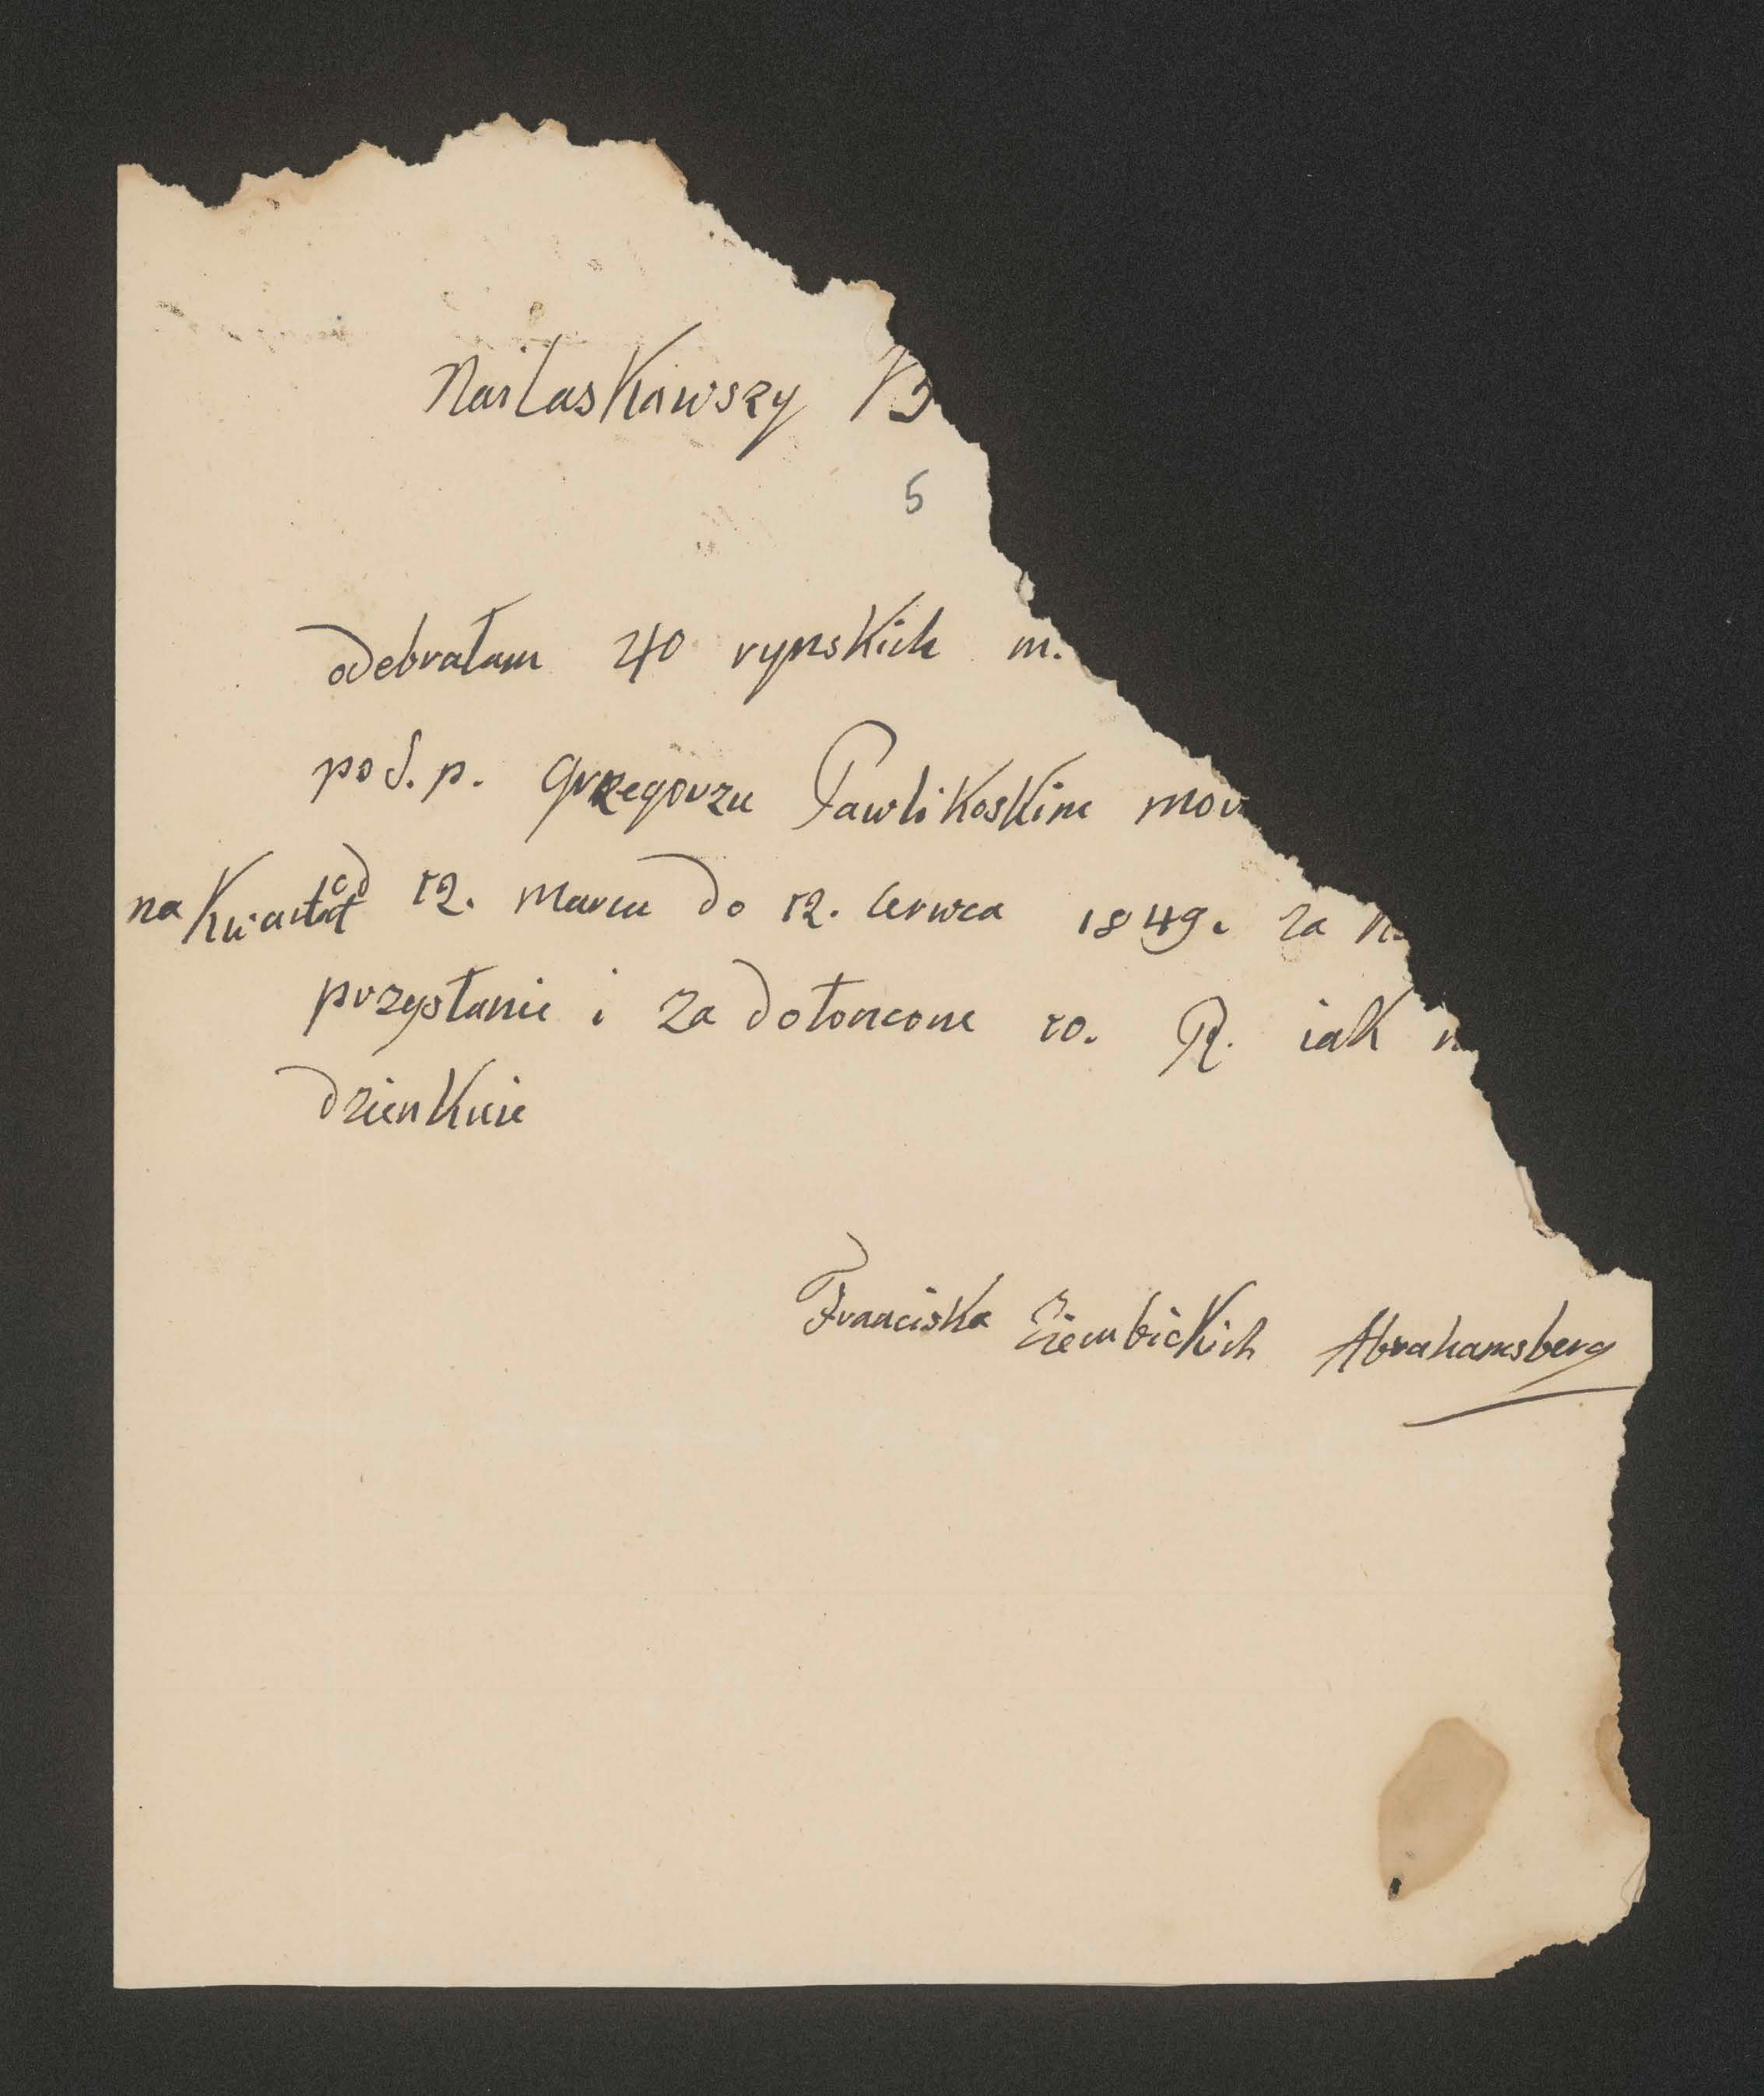 NaiLaskawszy
5
odebrałam 40 rynskich m.
po ś. p. Grzegorzu Pawlikoskim
na Kwartał od 12. marca do 12. Cerwca 1849. za
przysłanie i za dołoncone 10. R. iak
dzienkuie
Franciska Ziembickich Abrahamsberg